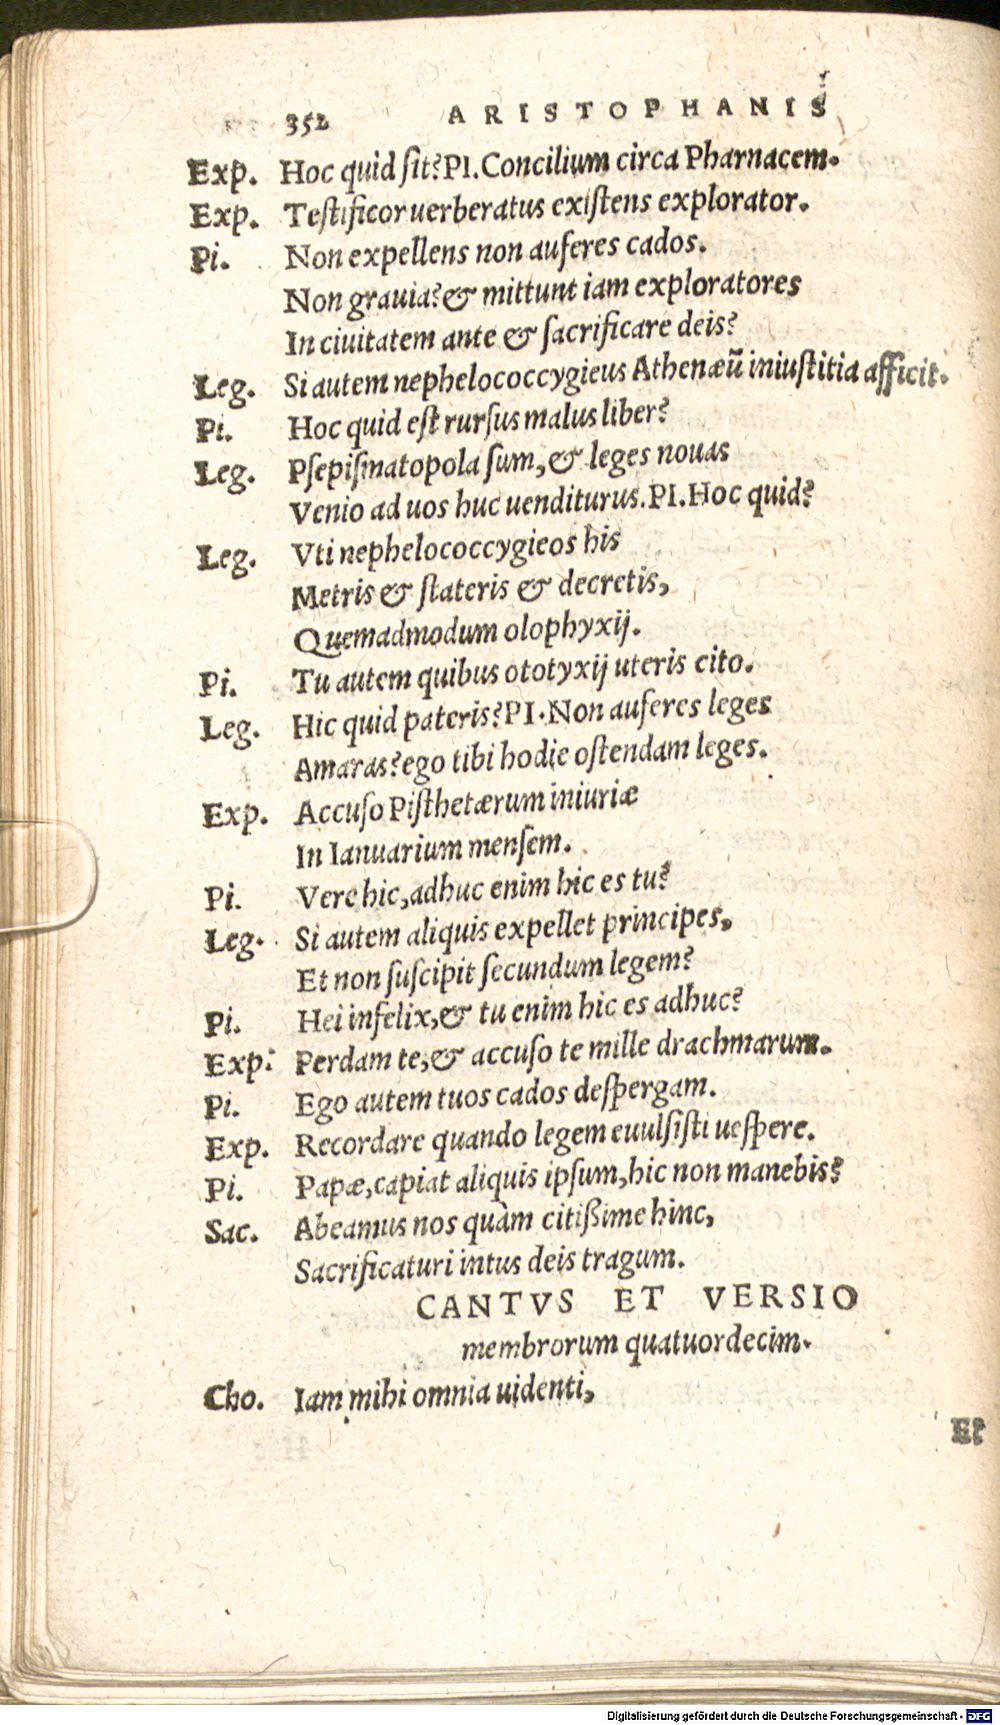 352 ARISTOPHANIS
Exp. Hoc quid sit? PI. Concilium circa Pharnacem.
Exp. Testificor uerberatus existens explorator.
Pi. Non expellens non auferes cados.
Non grauia? & mittunt iam exploratores
In ciuitatem ante & sacrificare deis?
Leg. Si autem nephelococcygieus Athenæũ iniustitia afficit.
Pi. Hoc quid est rursus malus liber?
Leg. Psepismatopola sum, & leges nouas
Venio ad uos huc uenditurus. PI. Hoc quid?
Leg. Vti nephelococcygieos his
Metris & stateris & decretis,
Quemadmodum olophyxij.
Pi. Tu autem quibus ototyxij uteris cito.
Leg. Hic quid pateris? PI. Non auferes leges
Amaras? ego tibi hodie ostendam leges.
Exp. Accuso Pisthetærum iniuriæ
In Ianuarium mensem.
Pi. Vere hic, adhuc enim hic es tu?
Leg. Si autem aliquis expellet principes,
Et non suscipit secundum legem?
Pi. Hei infelix, & tu enim hic es adhuc?
Exp: Perdam te, & accuso te mille drachmarum.
Pi. Ego autem tuos cados despergam.
Exp. Recordare quando legem euulsisti uespere.
Pi. Papæ, capiat aliquis ipsum, hic non manebis?
Sac. Abeamus nos quàm citißime hinc,
Sacrificaturi intus deis tragum.
CANTVS ET VERSIO
membrorum quatuordecim.
Cho. Iam mihi omnia uidenti,
Et
Digitalisierung gefördert durch die Deutsche Forschungsgemeinschaft - DFG